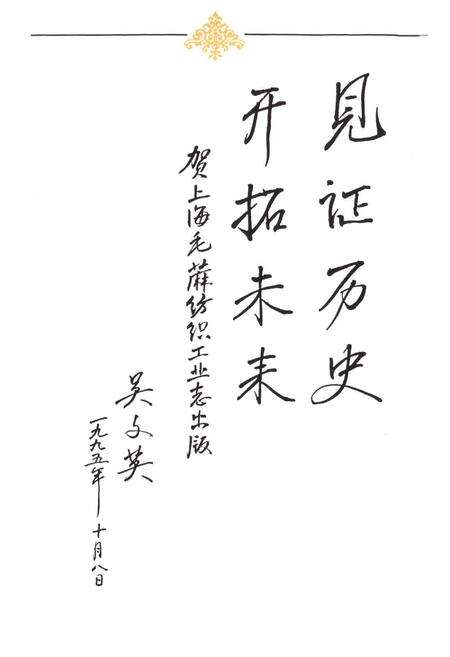 见证历史
开拓未来
贺上海毛蔴纺织工业志出版
吴文英
一九九五年十月八日